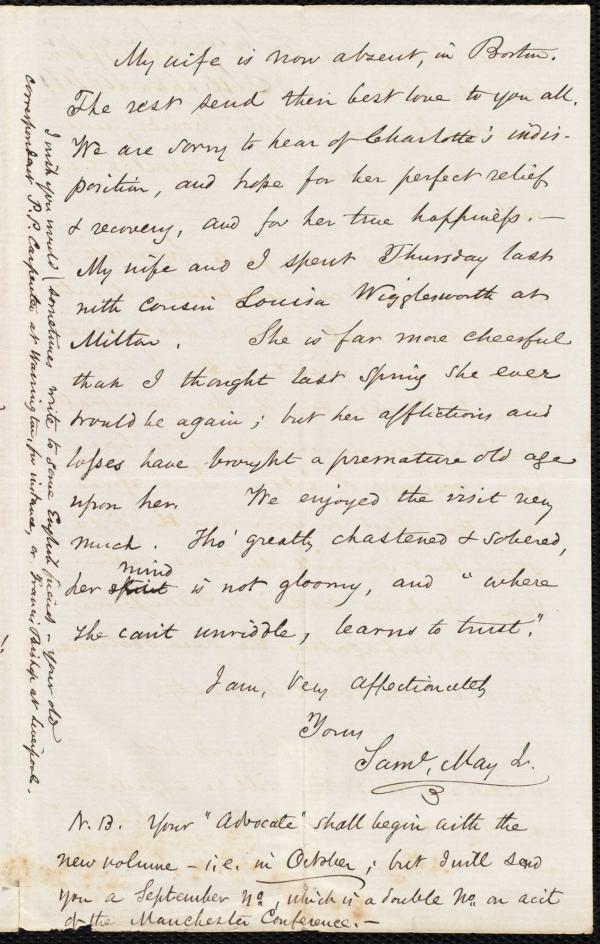 My wife is now absent, in Boston.
The rest send their best love to you all.
We are sorry to hear of Charlotte's indis-
position, and hope for her perfect relief
& recovery, and for her true happiness. —
My wife and I spent Thursday last
with cousin Louisa Wigglesworth at
Milton. She is far more cheerful
than I thought last Spring she ever
would be again; but her afflictions and
losses have brought a premature old age
upon her. We enjoyed the visit very
much. Tho' greatly chastened & sobered,
her spirit mind is not gloomy, and "where
she can't unriddle, learns to trust."
I am, very affectionately
Yours
Saml. May Jr.
N.B. Your "Advocate" shall begin with the
new volume – i.e. in October; but I will send
you a September No., which is a double No. on acct
of the Manchester Conference. —
I wish you would sometimes write to some English friends – your old
correspondent P.P. Carpenter at Warrington, for instance, or Francis Bishop at Liverpool.